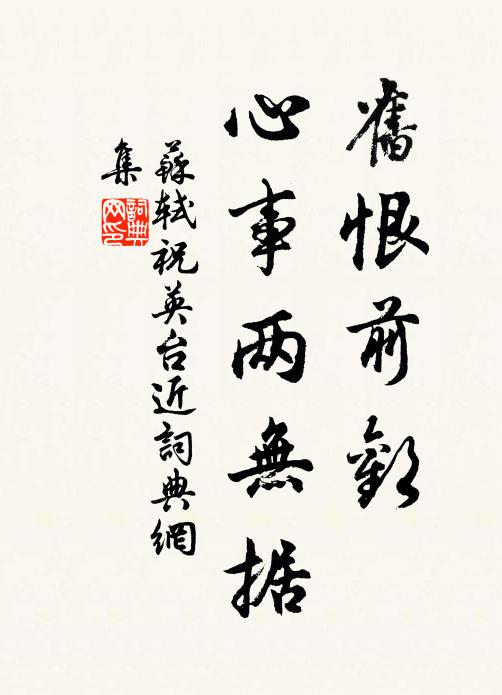 舊恨前歡
心事两無据
蘇軾祝英台近詞典網
集
詞典网印